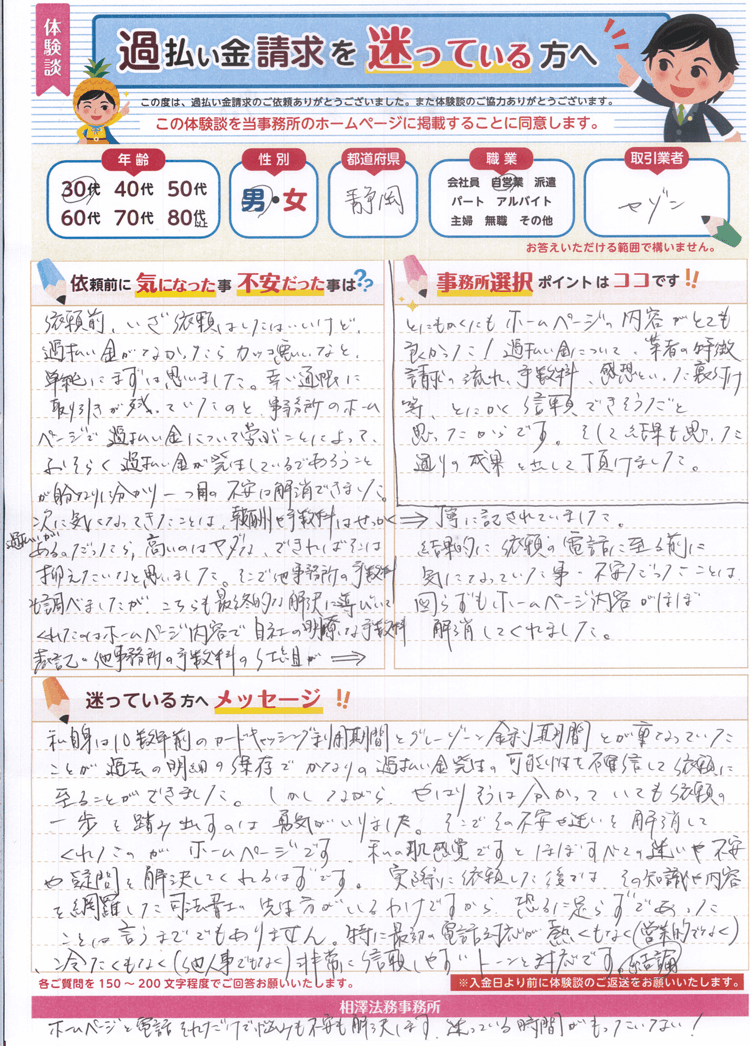 体験談
過払い金請求を迷っている方へ
この度は、過払い金請求のご依頼ありがとうございました。また体験談のご協力ありがとうございます。
この体験談を当事務所のホームページに掲載することに同意します。
年齢
30代 40代 50代
60代 70代 80代以上
性別
男・女
都道府県
静岡
職業
会社員 自営業 派遣
パート アルバイト
主婦 無職 その他
取引業者
セゾン
お答えいただける範囲で構いません。
依頼前に気になった事 不安だった事は??
依頼前、いざ依頼はしたはいいけど、
過払い金がなかったらカッコ悪いなと、
単純にまずは思いました。幸い通帳に
取り引きが残っていたのと、事務所のホーム
ページで過払い金について学ぶことによって、
おそらく過払い金が発生しているであろうこと
が自分なりに分かり一つ目の不安は解消できました。
次に気になってきたことは、報酬や手数料はせっかく
過払いが
あるのだったら、高いのはヤダな、できればそこは
抑えたいなと思いました。そこで他事務所の手数料
も調べましたが、こちらも最終的な解決に導いて
くれたのはホームページ内容で自社の明瞭な手数料
表記と他事務所の手数料の仕組が ⇒
事務所選択ポイントはココです!!
とにもかくにもホームページの内容がとても
良かった!過払い金について、業者の特徴
請求の流れ、手数料、感想といった裏付け
等、とにかく信頼できそうだと
思ったからです。そして結果も思った
通りの成果を出して頂けました。
⇒ 丁寧に記されていました。
結果的に依頼の電話に至る前に
気になっていた事・不安だったことは
図らずもホームページ内容がほぼ
解消してくれました。
迷っている方へメッセージ!!
私自身は10数年前のカードキャッシング利用期間とグレーゾーン金利期間とが重なっていた
ことが過去の明細の保存でかなりの過払い金発生の可能性を確信して依頼に
至ることができました。しかしながら、やはりそうは分かっていても依頼の
一歩を踏み出すのは勇気がいりました。そこでその不安や迷いを解消して
くれたのがホームページです。私の肌感覚ですとほぼすべての迷いや不安
や疑問を解決してくれるはずです。実際に依頼した後では、その知識や内容
を網羅した司法書士の先生方がいるわけですから恐るに足らずであった
ことは言うまでもありません。特に最初の電話対応が熱くもなく(営業的でなく)
冷たくもなく(他人事でもなく)非常に信頼しやすいトーンと対応です。結論
各ご質問を150～200文字程度でご回答お願いいたします。
※入金日より前に体験談のご返送をお願いいたします。
相澤法務事務所
ホームページと電話それだけで悩みも不安も解決します。迷っている時間がもったいない!